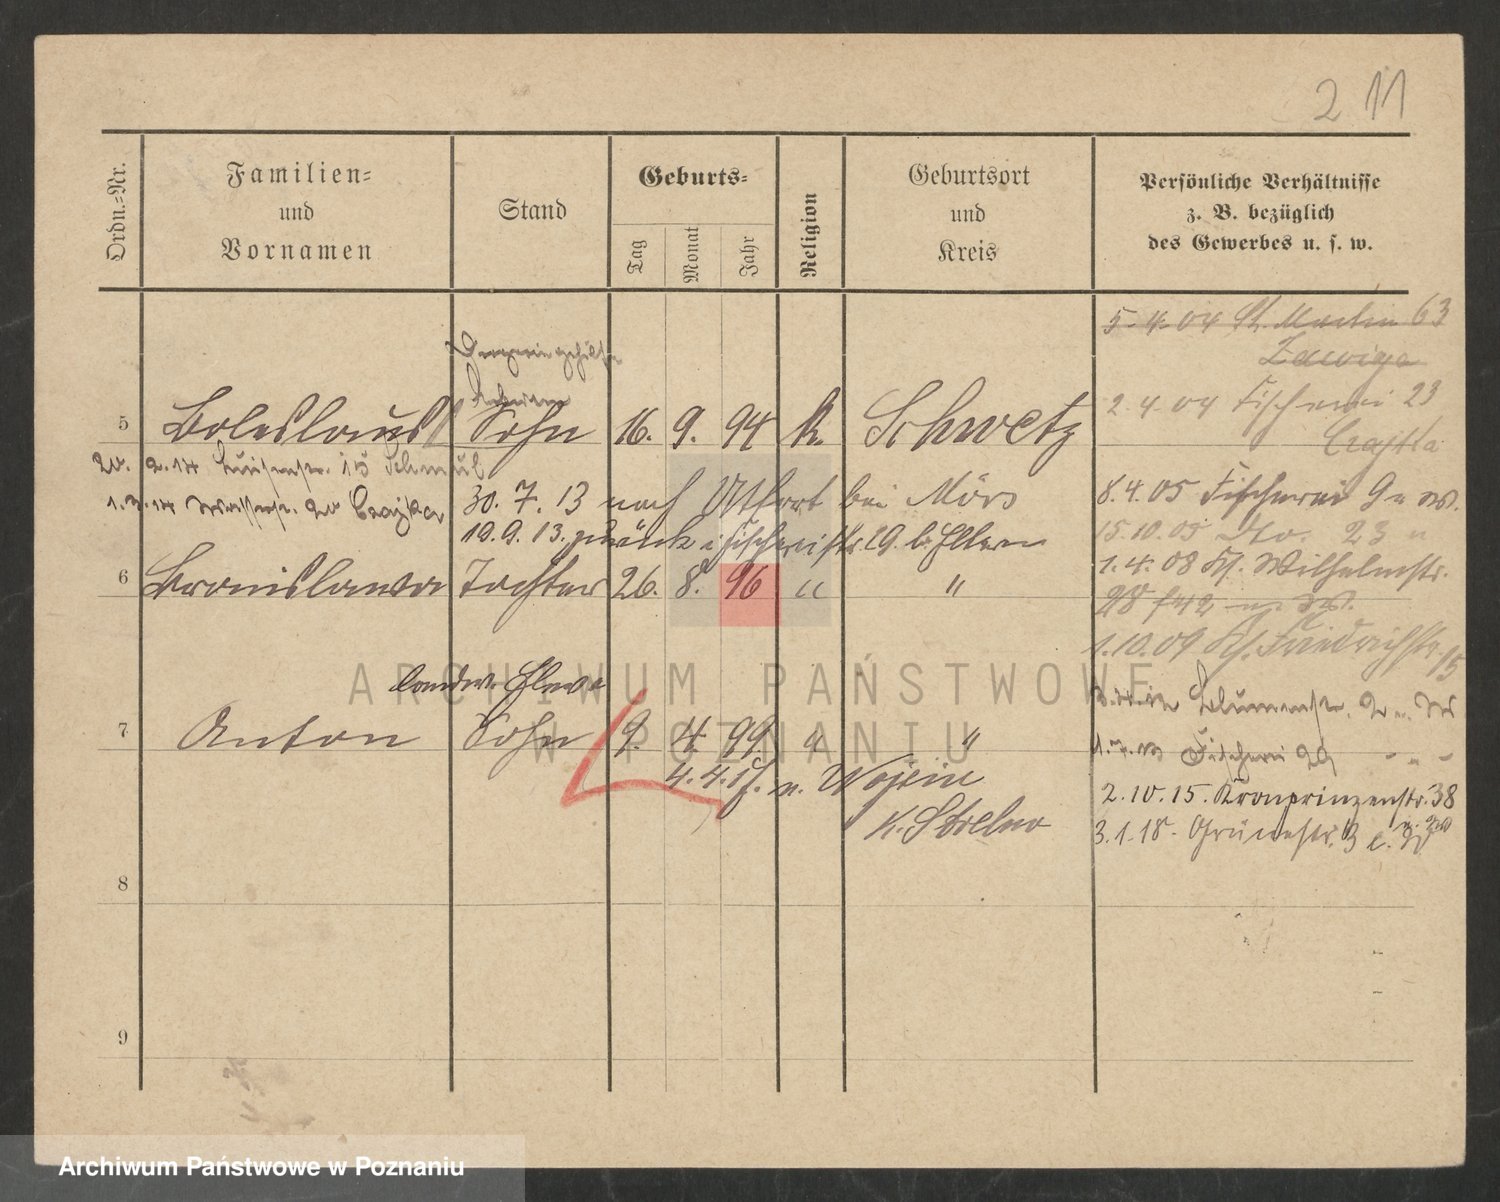 2 11
Ordn.-Nr.
Familien-
und
Vornamen
Stand
Geburts-
Tag
Monat
Jahr
Religion
Geburtsort
und
Kreis
Persönliche Verhältnisse
z. B. bezüglich
des Gewerbes u. s. w.
5.4.04 St. Martin 63
Drogeriegehilfe
2.4.04 Fischerei 23
Czajka
5 Boleslaus Sohn 16. 9. 94 k. Schwetz
20. 2.14 Luisenstr. 15
1.3.14 Wasserstr. 20 Czajka
30. 7. 13 nach Utfort bei Mörs
19.9.13. zurück Fischereistr. 29. b. Eltern
8.4.05 Fischerei 9
15.10.05 Do. 23
1.4.08 Kl. Wilhelmstr.
6 Bronislawa Tochter 26. 8. 96 " "
1.10.09 Friedrichstr. 15
landw. Eleve
7 Anton Sohn 9. 4. 99 " "
Blumenstr.
Fischerei 29
4.4.17. n. Wojcin
K. Strelno
2.10.15. Kronprinzenstr. 38
3.1.18. Grünestr.
8
9
ARCHIWUM PAŃSTWOWE
W POZNANIU
Archiwum Państwowe w Poznaniu